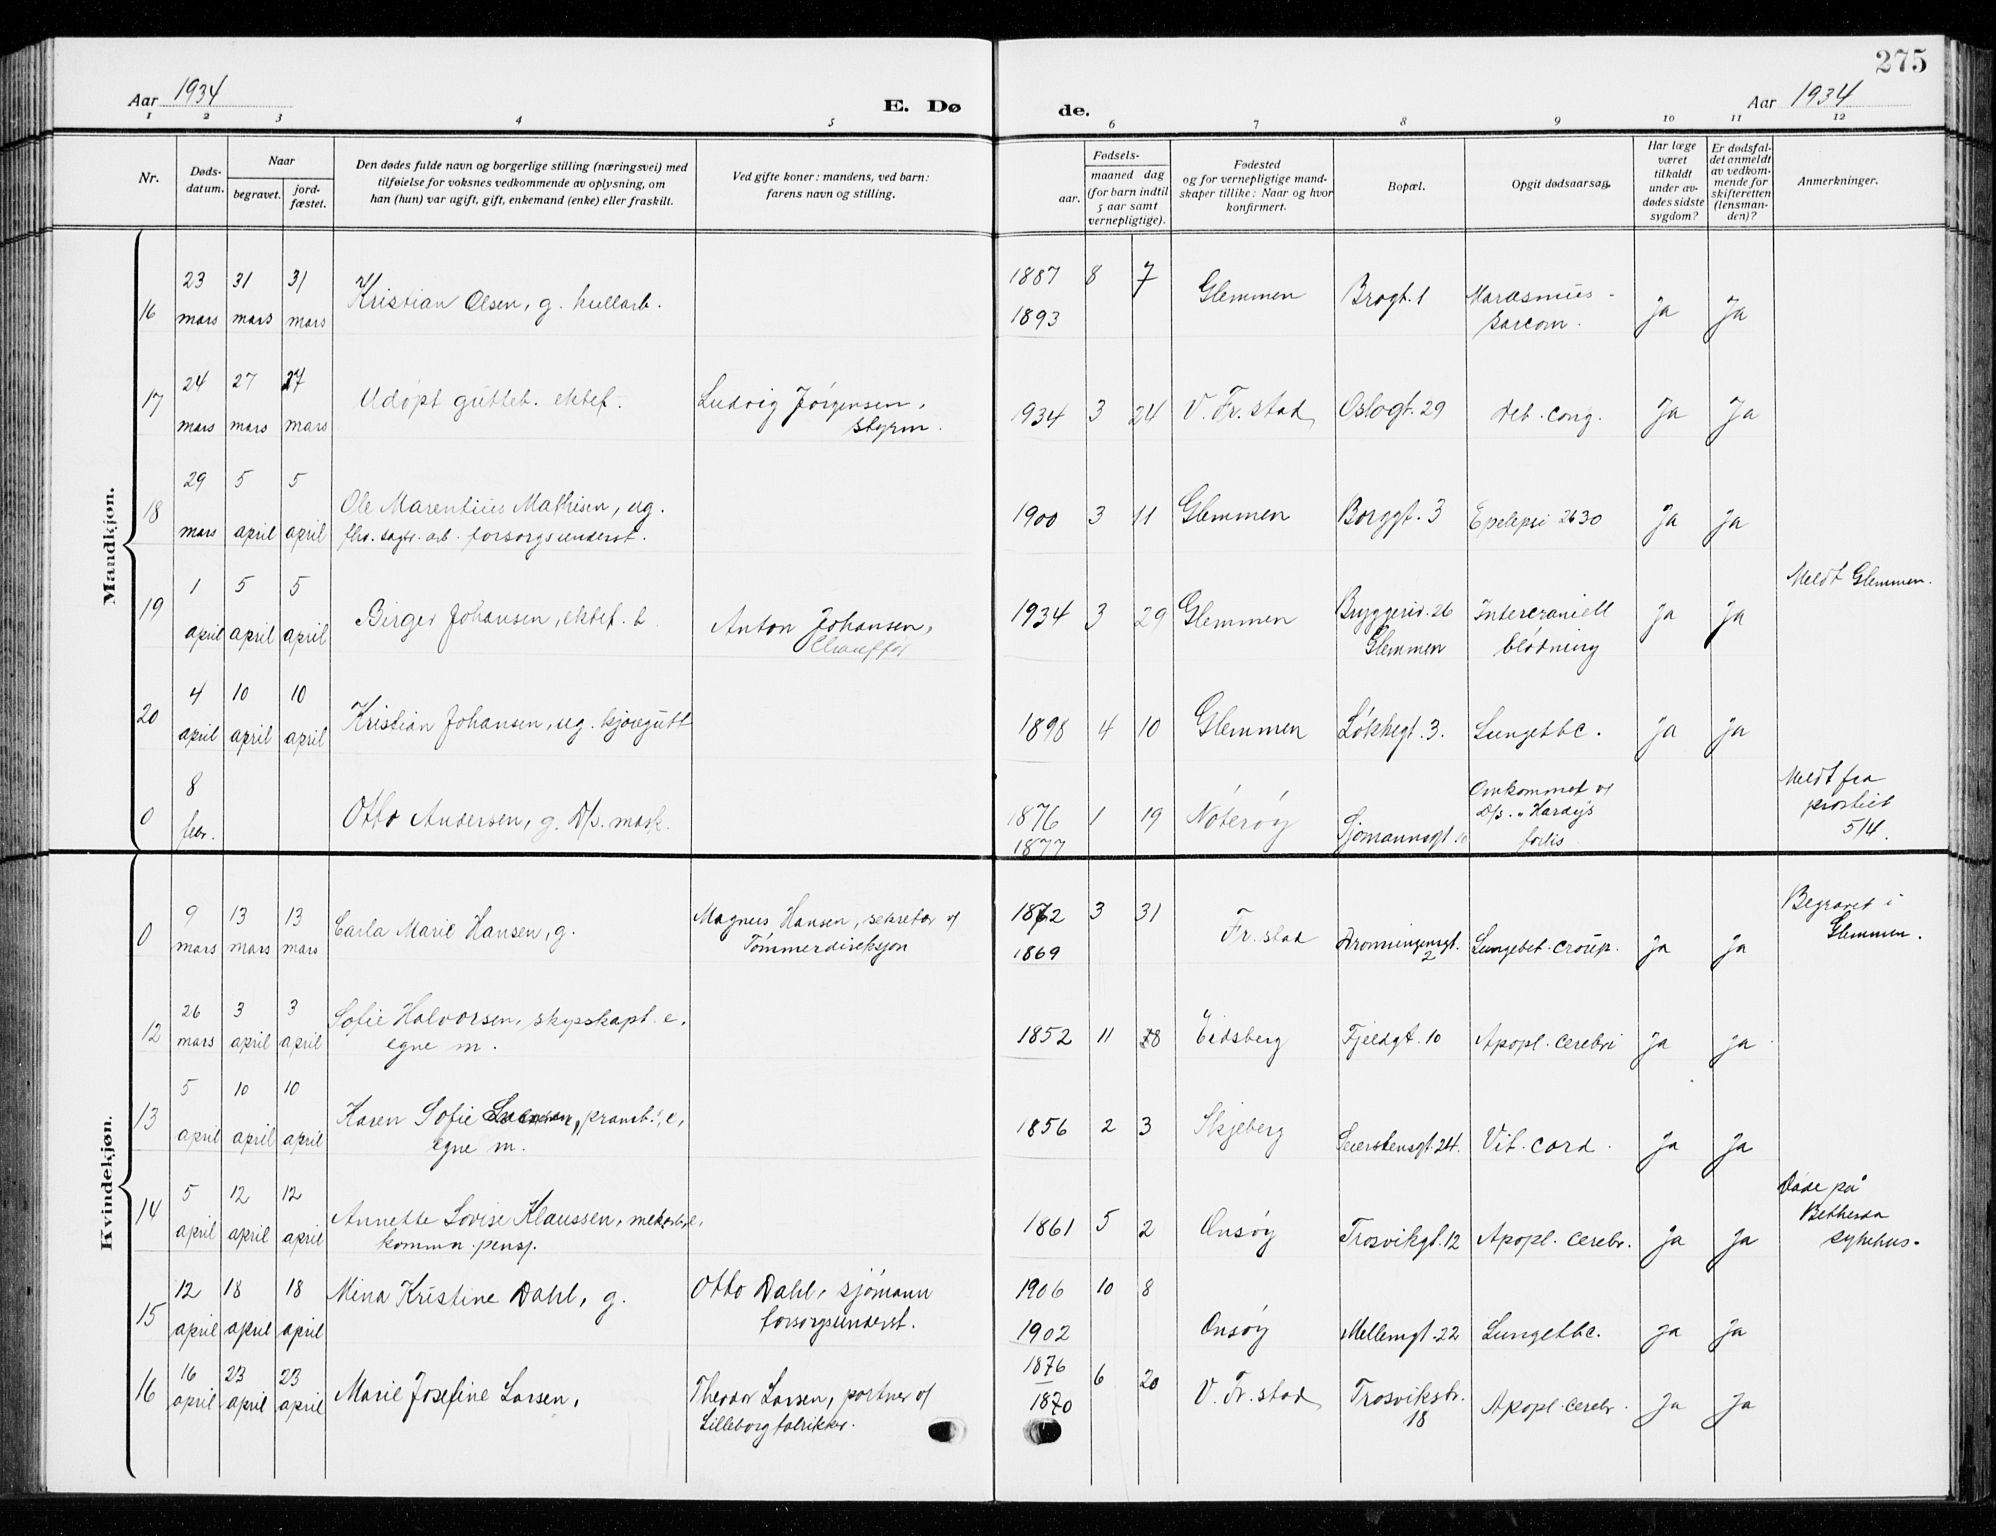 275
Aar 1934
E. Dø
de.
Aar 1934
1 2 3 4 5 6 7 8 9 10 11 12
Nr.
Døds-
datum.
Naar
begravet.
jord-
fæstet.
Den dødes fulde navn og borgerlige stilling (næringsvei) med
tilføielse for voksnes vedkommende av oplysning, om
han (hun) var ugift, gift, enkemand (enke) eller fraskilt.
Ved gifte koner: mandens, ved barn:
farens navn og stilling.
Fødsels-
aar.
maaned dag
(for barn indtil
5 aar samt
vernepligtige).
Fødested
og for vernepligtige mand-
skaper tillike: Naar og hvor
konfirmert.
Bopæl.
Opgit dødsaarsag.
Har læge
været
tilkaldt
under av-
dødes sidste
sygdom?
Er dødsfal-
det anmeldt
av vedkom-
mende for
skifteretten
(lensman-
den)?
Anmerkninger.
Mandkjøn.
16 23 mars 31 mars 31 mars Kristian Olsen, g. kullarb. 1887 8 7 1893 Glemmen Brogt. 1 Marasmus - Sarcom. Ja Ja
17 24 mars 27 mars 27 mars Udøpt gutteb. ektef. Ludvig Jørgensen, styrm. 1934 3 24 V. Fr.stad Oslogt. 29 deb. cong. Ja Ja
18 29 mars 5 april 5 april Ole Marentius Mathisen, ug. fhv. sagbr. arb. forsorgsunderst. 1900 3 11 Glemmen Borggt. 3 Epelepsi 2630 Ja Ja
19 1 april 5 april 5 april Birger Johansen, ektef. b. Anton Johansen, Chauffør 1934 3 29 Glemmen Bryggeriv. 26 Glemmen Intercraniell blødning Ja Ja Meldt Glemmen.
20 4 april 10 april 10 april Kristian Johansen, ug. bjøregutt 1898 4 10 Glemmen Løkkegt. 3. Lungetbc. Ja Ja
0 8 febr. Otto Andersen, g. D/s. mask. 1876 1 19 1877 Nøterøy Sjømannsgt. 10 Omkommet v/ D/s. "Hardys" forlis Meldt fra prostiet 5/4.
Kvindekjøn.
0 9 mars 13 mars 13 mars Carla Marie Hansen, g. Magnus Hansen, sekretær v/ Tømmerdireksjon 1872 3 31 1869 Fr.stad Dronningensgt. 2 Lungebet. croup. Ja Ja Begravet i Glemmen.
12 26 mars 3 april 3 april Sofie Halvorsen, skysskapt. e. egne m. 1852 11 28 Eidsberg Fjeldgt. 10 Apopl. cerebri Ja Ja
13 5 april 10 april 10 april Karen Sofie pramb. e, egne m. 1856 2 3 Skjeberg Seierstensgt. 24. Vit. cord. Ja Ja
14 5 april 12 april 12 april Annette Lovise Klaussen, mekarb. e, komm. pensj. 1861 5 2 Onsøy Trosvikgt. 12 Apopl. cerebr. Ja Ja Døde på Bethesda sykehus.
15 12 april 18 april 18 april Mina Kristine Dahl, g. Otto Dahl, sjømann forsorgsunderst. 1906 10 8 1902 Onsøy Mellemgt. 22 Lungetbc. Ja Ja
16 16 april 23 april 23 april Marie Josefine Larsen, Theodor Larsen, portner v/ Lilleborg fabrikker. 1876 6 20 1870 V. Fr.stad Trosvikstr. 18 Apopl. cerebr. Ja Ja